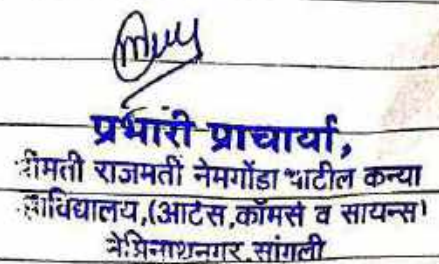 प्रभारी प्राचार्या,
श्रीमती राजमती नेमगोंडा पाटील कन्या
महाविद्यालय,(आर्टस,कॉमर्स व सायन्स)
नेमिनाथनगर,सांगली